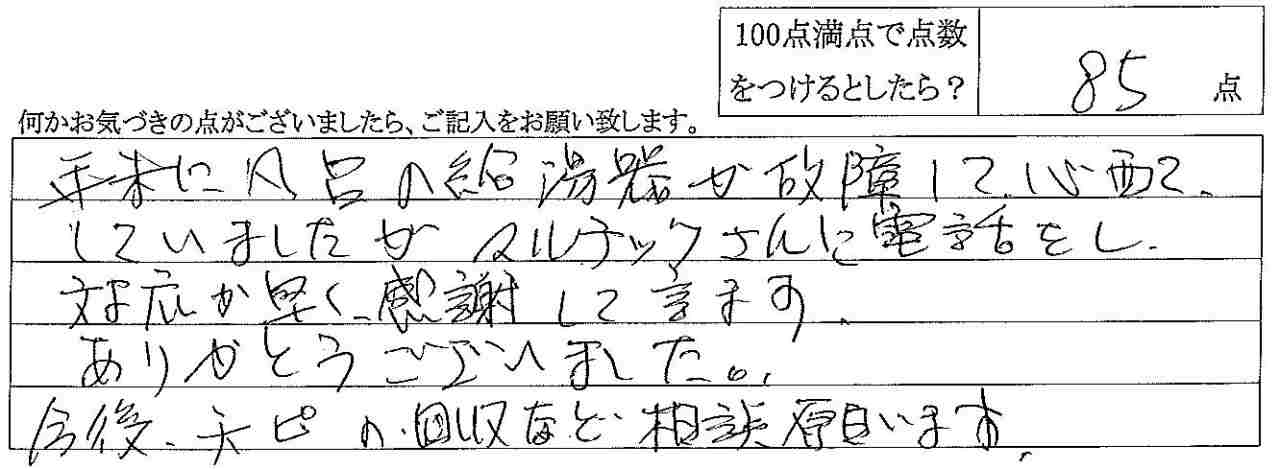 100点満点で点数
をつけるとしたら?
85 点
何かお気づきの点がございましたら、ご記入をお願い致します。
年末に風呂の給湯器が故障して、心配
していましたが マルチックさんに電話をし、
対応が早く、感謝して ます。
ありがとうございました。
今後、テレビの回収など相談願います。